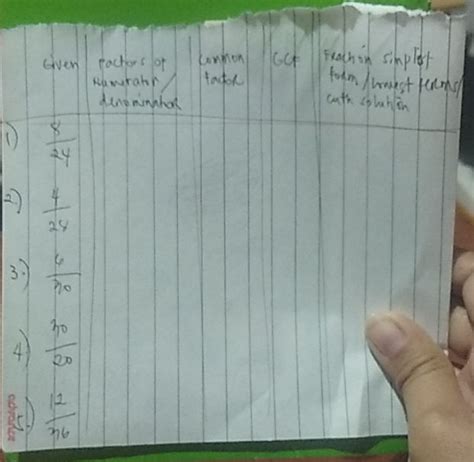 Given Factors of Common GCF Fraction in simplest
Numerator / factor form / lowest terms /
denominator with solution
1) 8/24
2.) 4/24
3.) 6/30
4) 30/20
5.) 12/36
advance